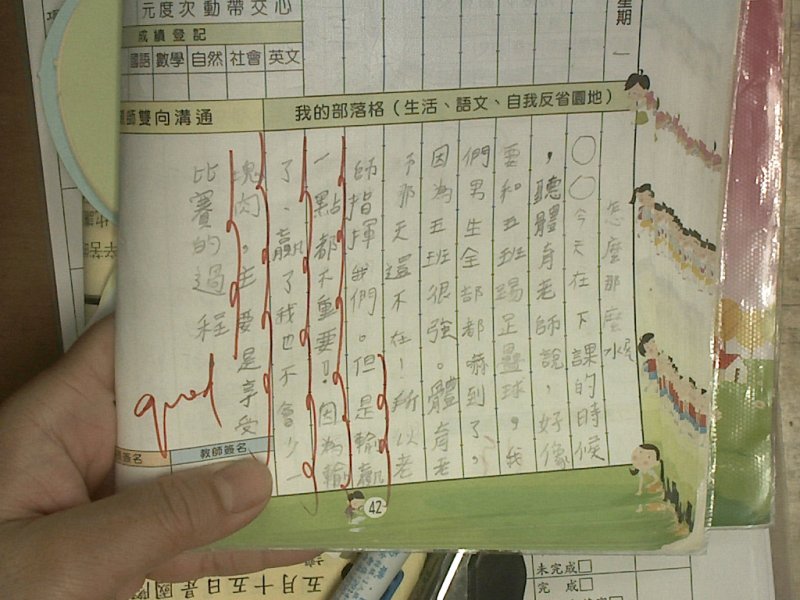 元度次動帶交心
成績登記
國語 數學 自然 社會 英文
星期
師雙向溝通
我的部落格（生活、語文、自我反省園地）
怎麼那麼
○○今天在下課的時候
，聽體育老師說，好像
要和五班踢足壘球，我
們男生全部都嚇到了，
因為五班很強。體育老
師那天還不在！所以老
師指揮我們。但是輸贏
一點都不重要!!因為輸
了、贏了我也不會少一
塊肉，主要是享受
比賽的過程
good
簽名
教師簽名
42
五月十五日是國
未完成□
完 成□